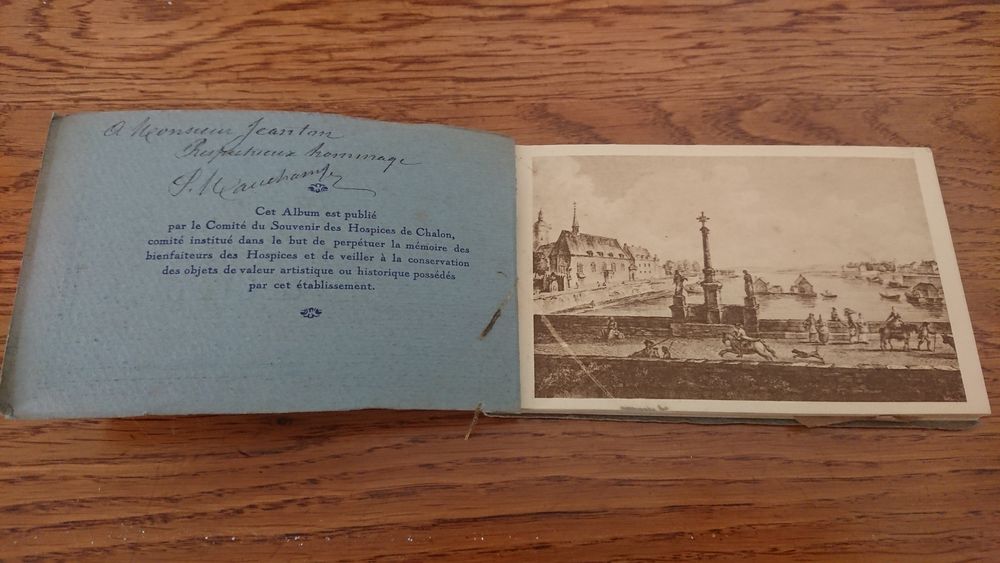 A Monsieur Jeanton
Respectueux hommage
Cet Album est publié
par le Comité du Souvenir des Hospices de Chalon,
comité institué dans le but de perpétuer la mémoire des
bienfaiteurs des Hospices et de veiller à la conservation
des objets de valeur artistique ou historique possédés
par cet établissement.